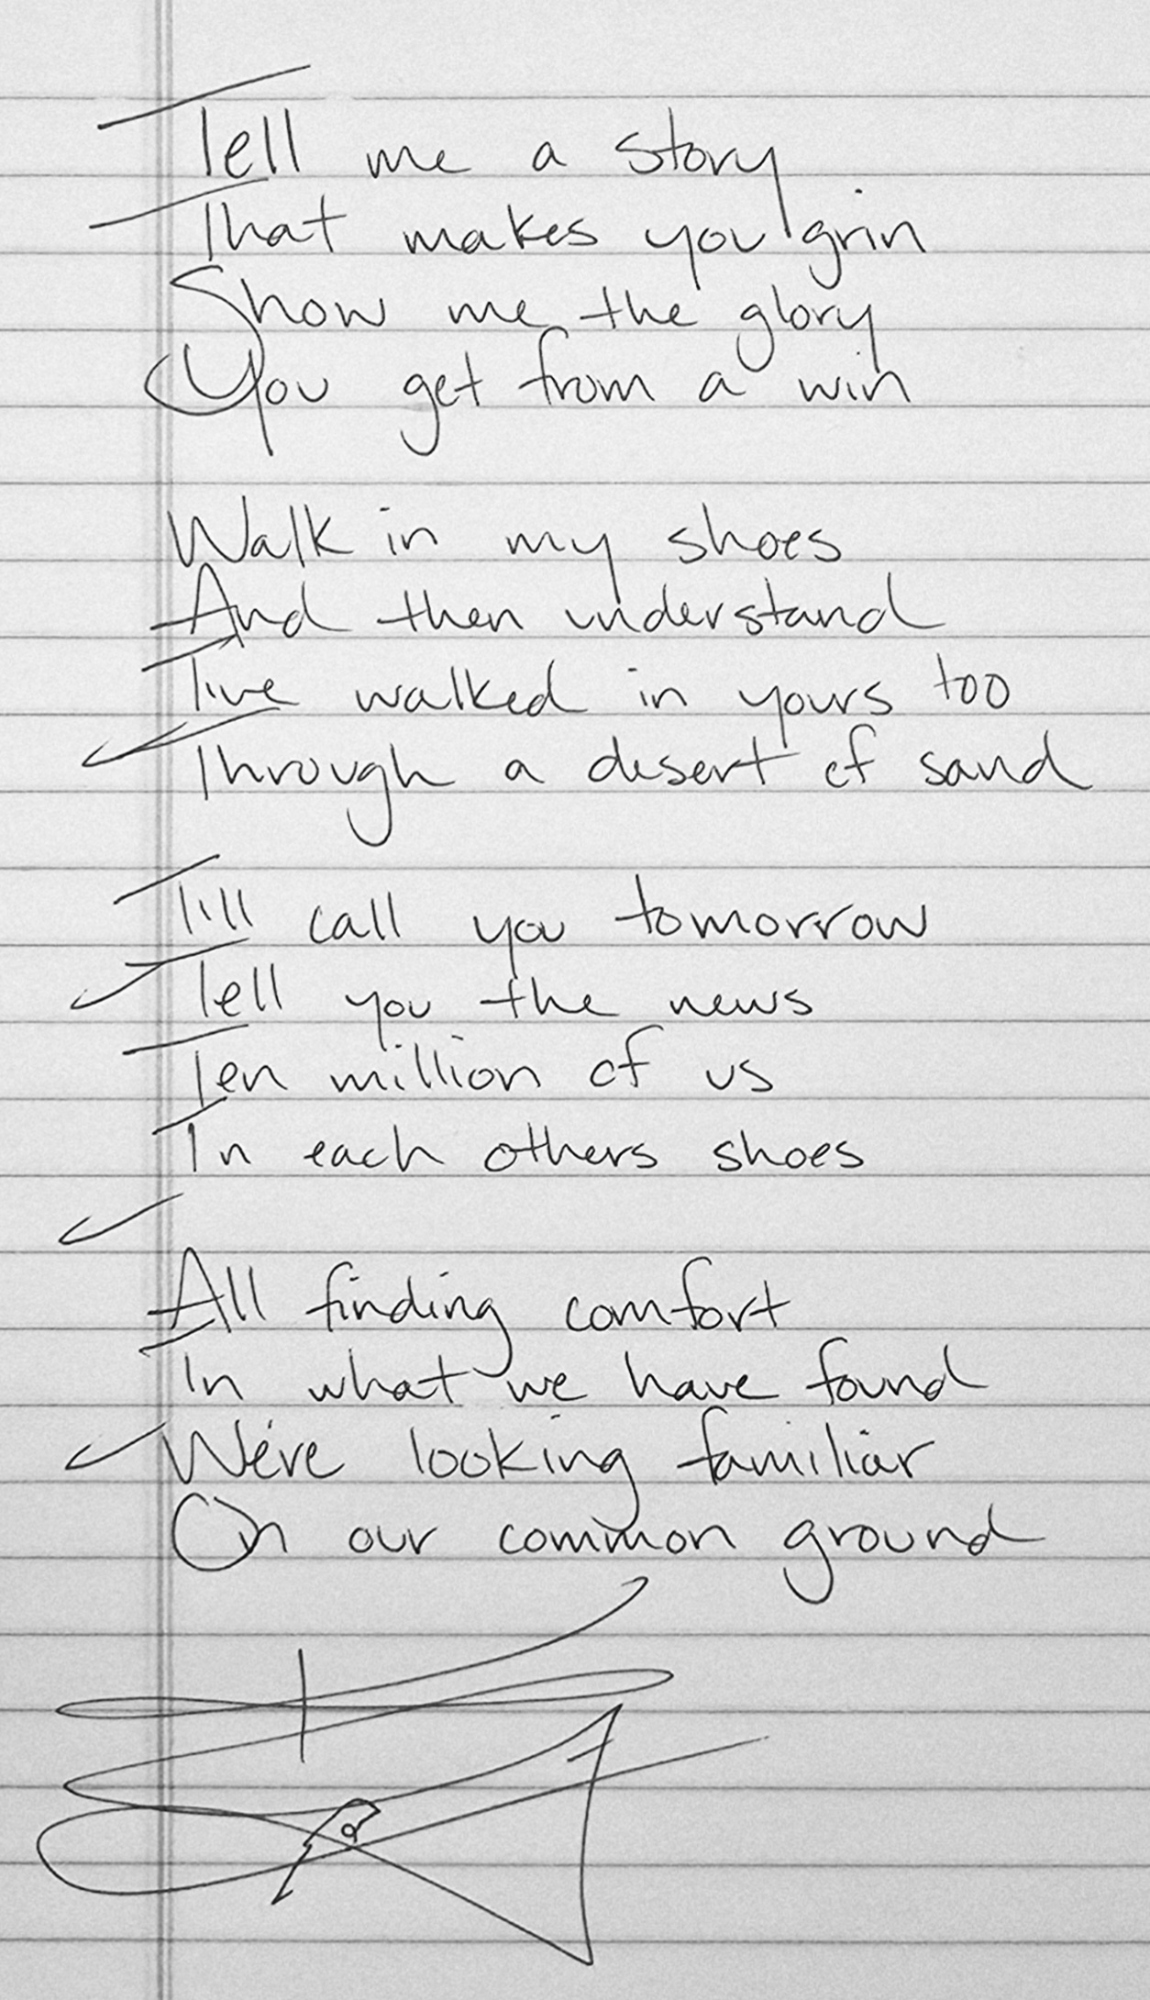 Tell me a story
That makes you grin
Show me the glory
You get from a win
Walk in my shoes
And then understand
I've walked in yours too
Through a desert of sand
I'll call you tomorrow
Tell you the news
Ten million of us
In each others shoes
All finding comfort
In what we have found
We're looking familiar
On our common ground